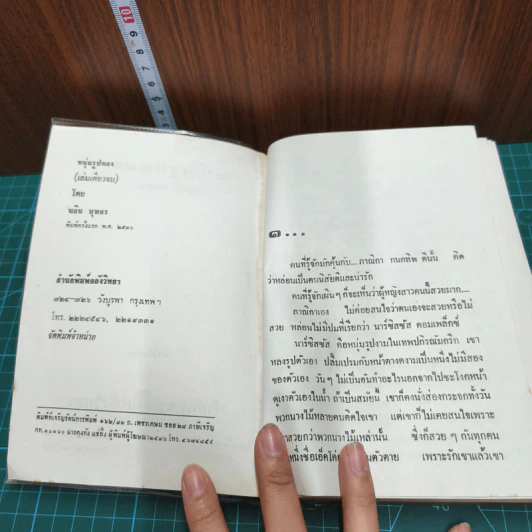 หนุ่มรูปทอง
(เล่มเดียวจบ)
โดย
นลิน บุษกร
พิมพ์ครั้งแรก พ.ศ. ๒๕๓๖
สำนักพิมพ์คลังวิทยา
๘๒๔-๘๒๖ วังบูรพา กรุงเทพฯ
โทร. ๒๒๒๔๕๔๖, ๒๒๑๙๓๓๑
จัดพิมพ์จำหน่าย
พิมพ์ที่เจริญรัตน์การพิมพ์ ๑๖๒/๔๑ ถ. เพชรเกษม ซอย ๒๘ ภาษีเจริญ
๑...
คนที่รู้จักมักคุ้นกับ...ภาณิกา กนกทิพ ดีนั้น คิด
ว่าหล่อนเป็นคนนิสัยดีและน่ารัก
คนที่รู้จักเผินๆ ก็จะเห็นว่าผู้หญิงสาวคนนี้สวยมาก...
ภาณิกาเอง ไม่ค่อยสนใจว่าคนเองจะสวยหรือไม่
สวย หล่อนไม่มีปมที่เรียกว่า นาร์ซิสซัส คอมเพล็กซ์
นาร์ซิสซัส คือหนุ่มรูปงามในเทพปกิรณัมกรีก เขา
หลงรูปตัวเอง ปลื้มเปรมกับหน้าตางดงามเป็นหนึ่งไม่มีสอง
ของตัวเอง วันๆ ไม่เป็นอันทำอะไรนอกจากไปชะโงกหน้า
ดูเงาตัวเองในน้ำ ถ้าเป็นสมัยนี้ เขาก็คงนั่งส่องกระจกทั้งวัน
พวกนางไม้หลายคนติดใจเขา แต่เขาก็ไม่เคยสนใจเพราะ
สวยกว่าพวกนางไม้เหล่านั้น ซึ่งก็สวยๆ กันทุกคน
หนึ่งชื่อเอ็คโค่ ตัวตาย เพราะรักเขาแล้วเขา
9
10
8
7
6
5
4